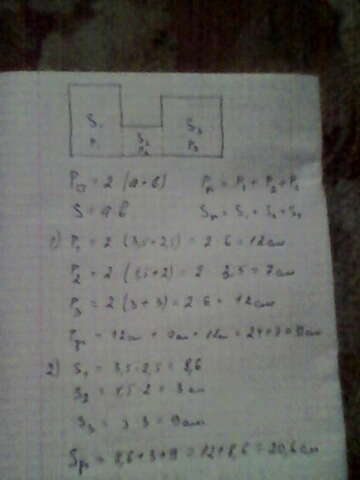 S₁ S₂ S₃
P₁ P₂ P₃
P▭ = 2 (a+b) P = P₁ + P₂ + P₃
S = a b S = S₁ + S₂ + S₃
1) P₁ = 2 (3,5+2,5) = 2 6 = 12 см
P₂ = 2 (1,5+2) = 2 3,5 = 7 см
P₃ = 2 (3+3) = 2 6 = 12 см
P = 12 см + 7 см + 12 см = 24+7=31 см
2) S₁ = 3,5 2,5 = 8,6
S₂ = 1,5 2 = 3 см
S₃ = 3 3 = 9 см
S = 8,6+3+9 = 12+8,6 = 20,6 см